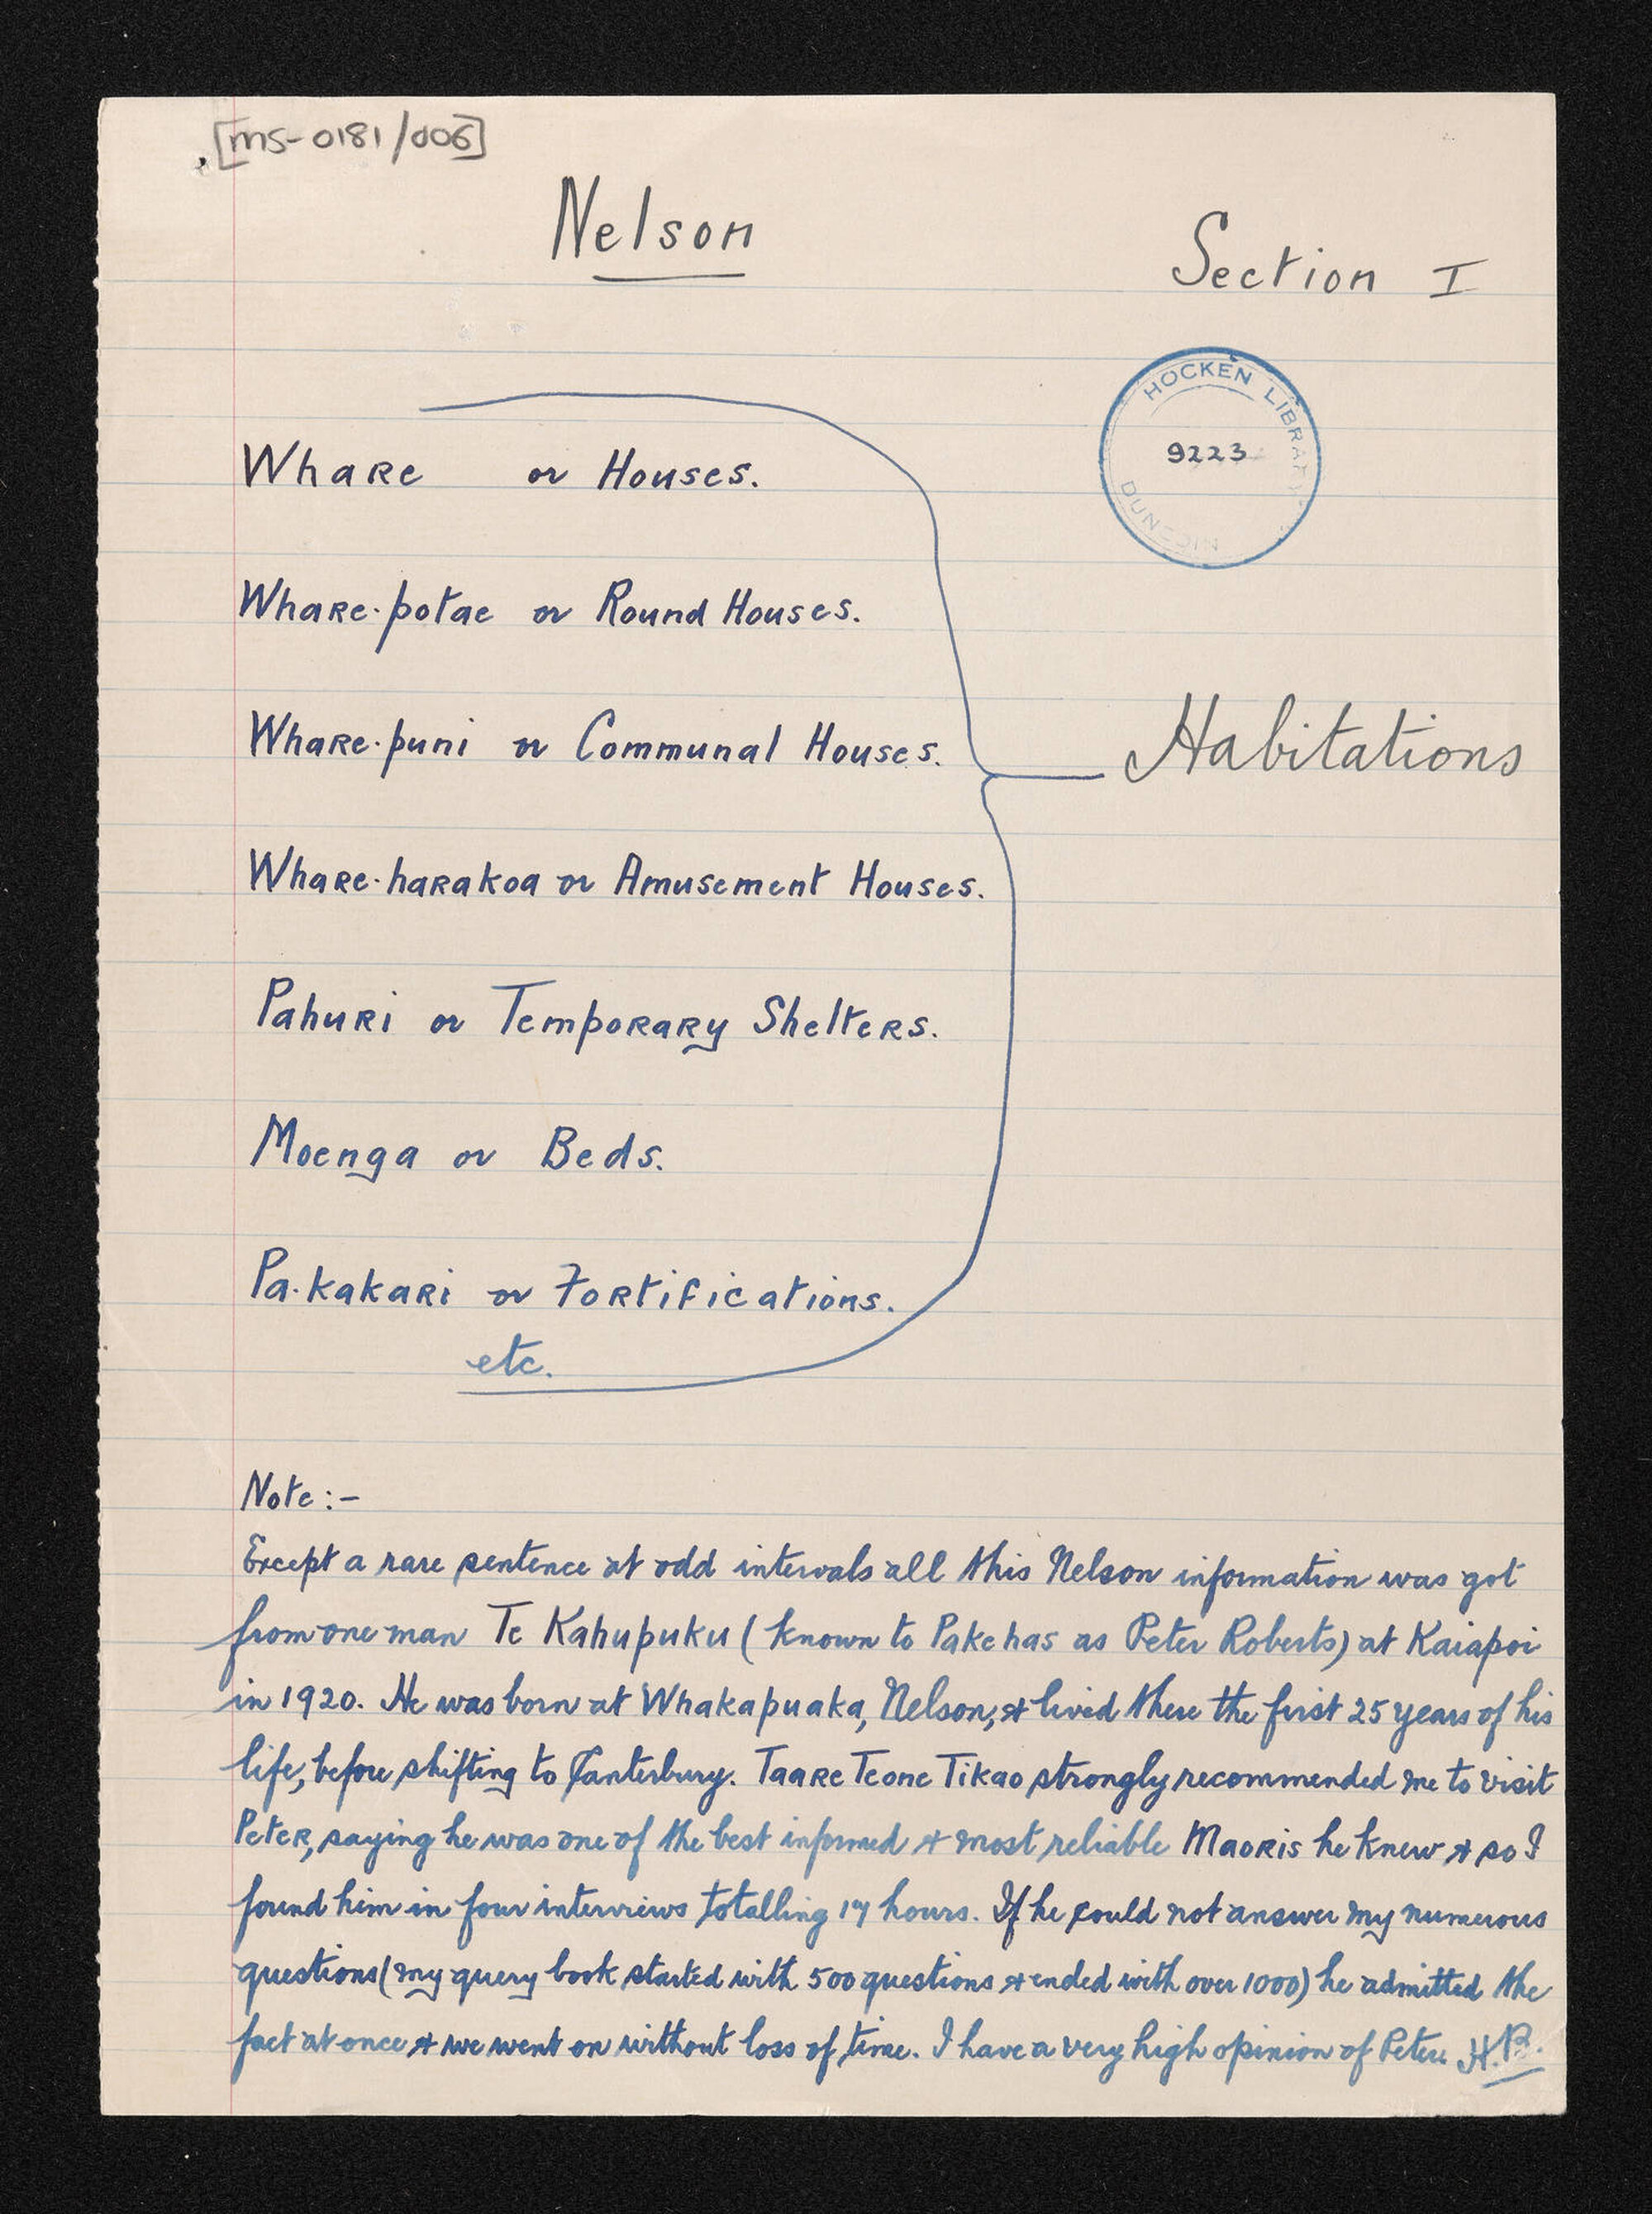 [MS-0181/006]
Nelson
Section I
HOCKEN LIBRARY
9223
DUNEDIN
Whare or Houses.
Whare-potae or Round Houses.
Whare-puni or Communal Houses.
Habitations
Whare-harakoa or Amusement Houses.
Pahuri or Temporary Shelters.
Moenga or Beds.
Pa-kakari or Fortifications.
etc.
Note:-
Except a rare sentence at odd intervals all this Nelson information was got
from one man Te Kahupuku (known to Pakehas as Peter Roberts) at Kaiapoi
in 1920. He was born at Whakapuaka, Nelson, & lived there the first 25 years of his
life, before shifting to Canterbury. Taare Teone Tikao strongly recommended me to visit
Peter, saying he was one of the best informed & most reliable Maoris he knew & so I
found him in four interviews totalling 17 hours. If he could not answer my numerous
questions (my query book started with 500 questions & ended with over 1000) he admitted the
fact at once & we went on without loss of time. I have a very high opinion of Peter. H.B.